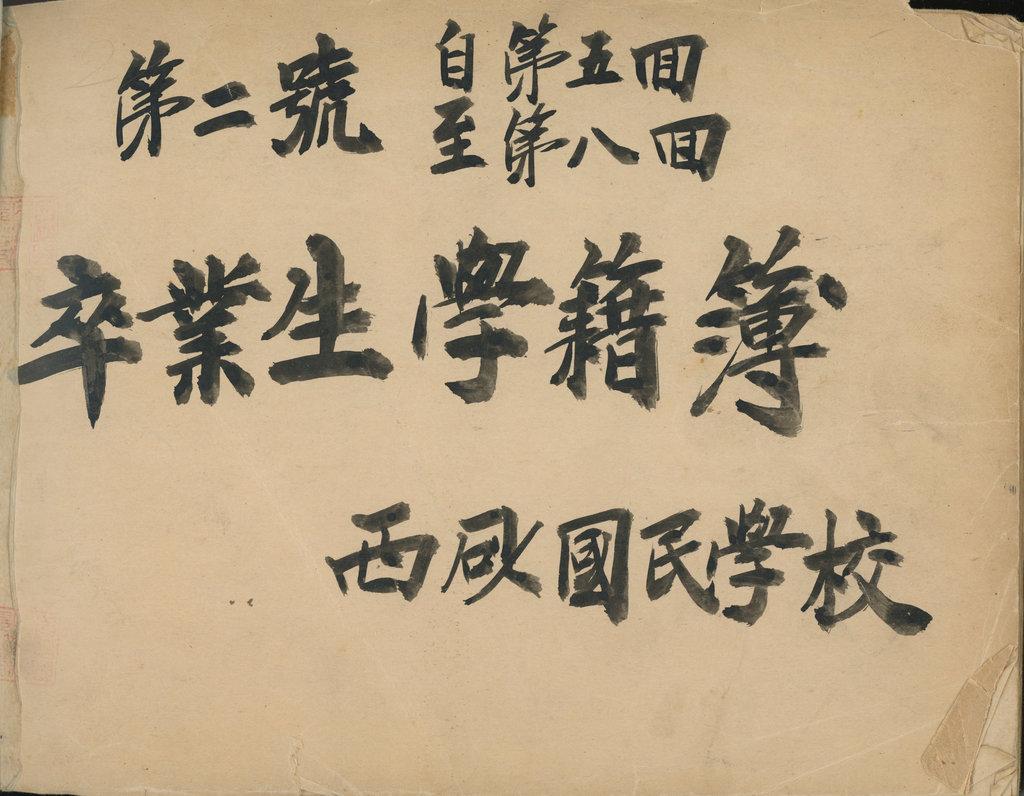 第二號
自第五回
至第八回
卒業生學籍簿
西 國民學校